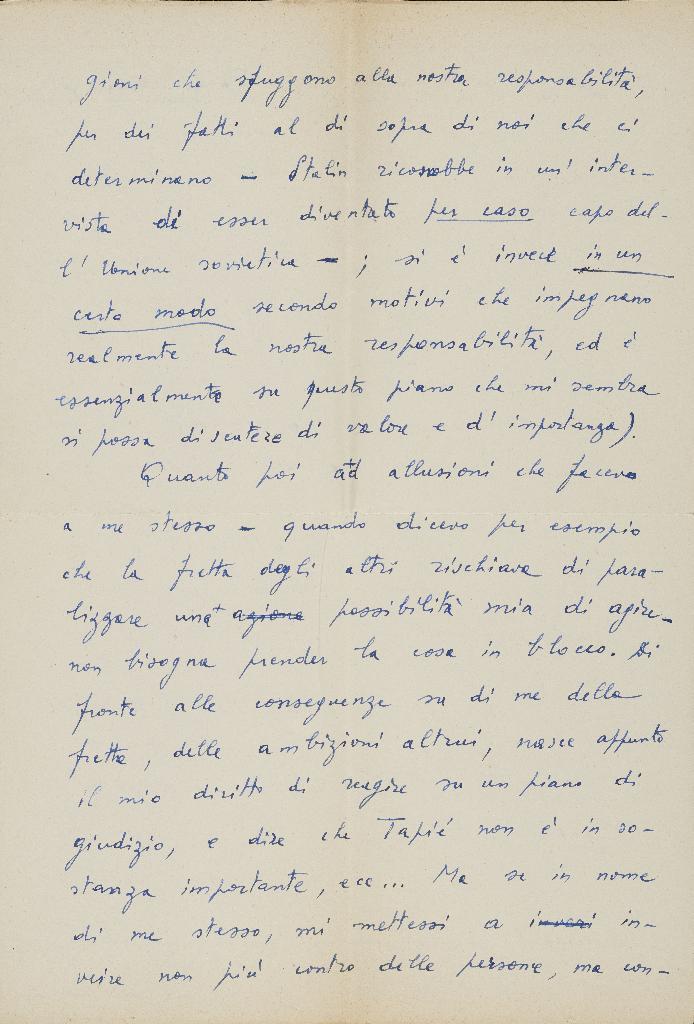 gioni che sfuggono alla nostra responsabilità,
per dei fatti al di sopra di noi che ci
determinano – Stalin riconobbe in un' inter-
vista di esser diventato per caso capo del-
l' Unione sovietica – ; si è invece in un
certo modo secondo motivi che impegnano
realmente la nostra responsabilità, ed è
essenzialmente su questo piano che mi sembra
si possa discutere di valore e d' importanza).
Quanto poi ad allusioni che facevo
a me stesso – quando dicevo per esempio
che la fretta degli altri rischiava di para-
lizzare una azione possibilità mia di agire –
non bisogna prender la cosa in blocco. Di
fronte alle conseguenze su di me della
fretta, delle ambizioni altrui, nasce appunto
il mio diritto di reagire su un piano di
giudizio, e dire che Tapié non è in so-
stanza importante, ecc... Ma se in nome
di me stesso, mi mettessi a in-
veire non più contro delle persone, ma con-